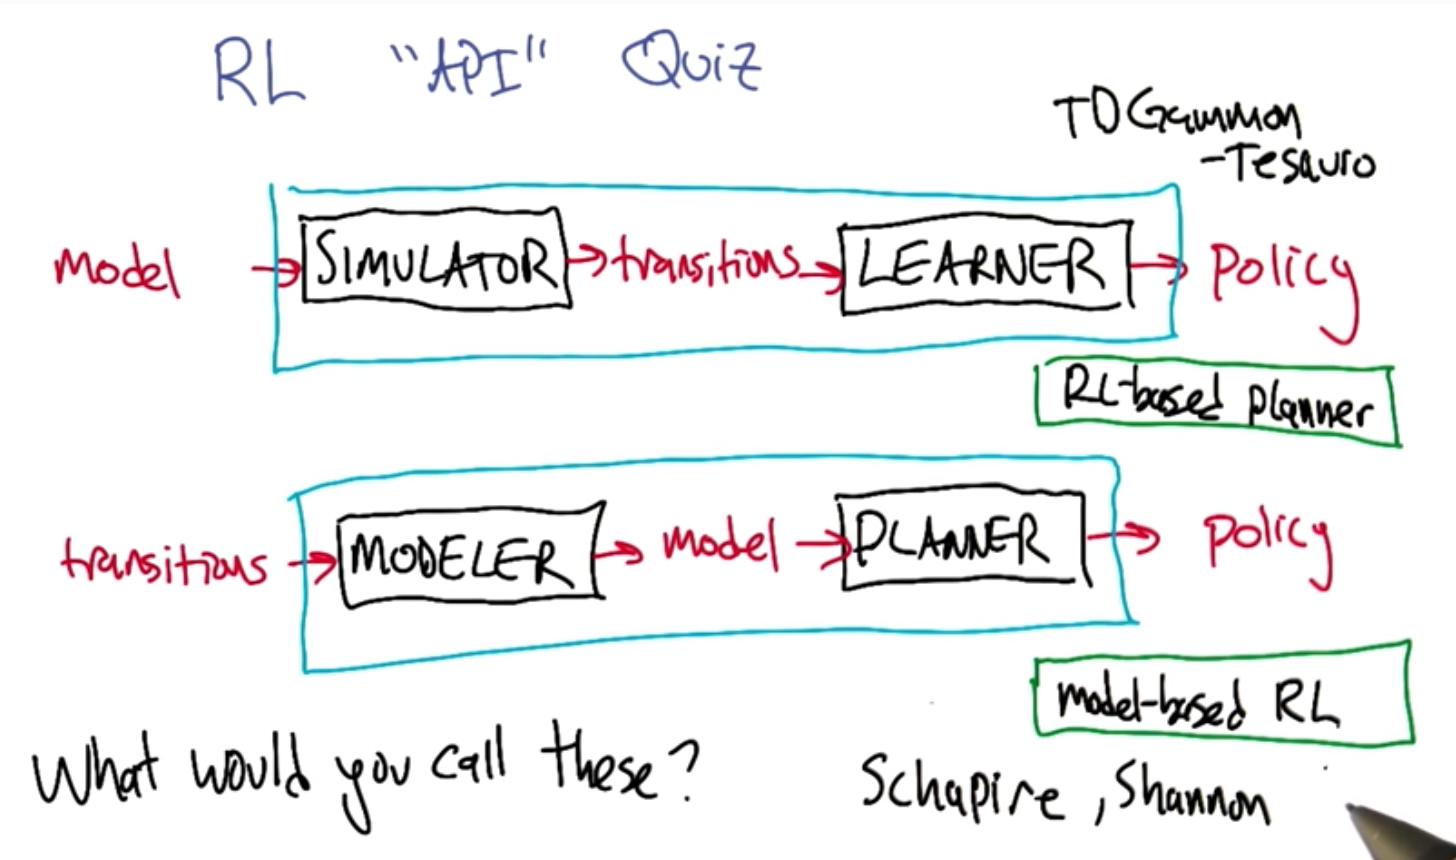 RL "API" Quiz
TD Gammon
-Tesauro
model → SIMULATOR → transitions → LEARNER → policy
RL-based planner
transitions → MODELER → model → PLANNER → policy
model-based RL
What would you call these?
Schapire, Shannon